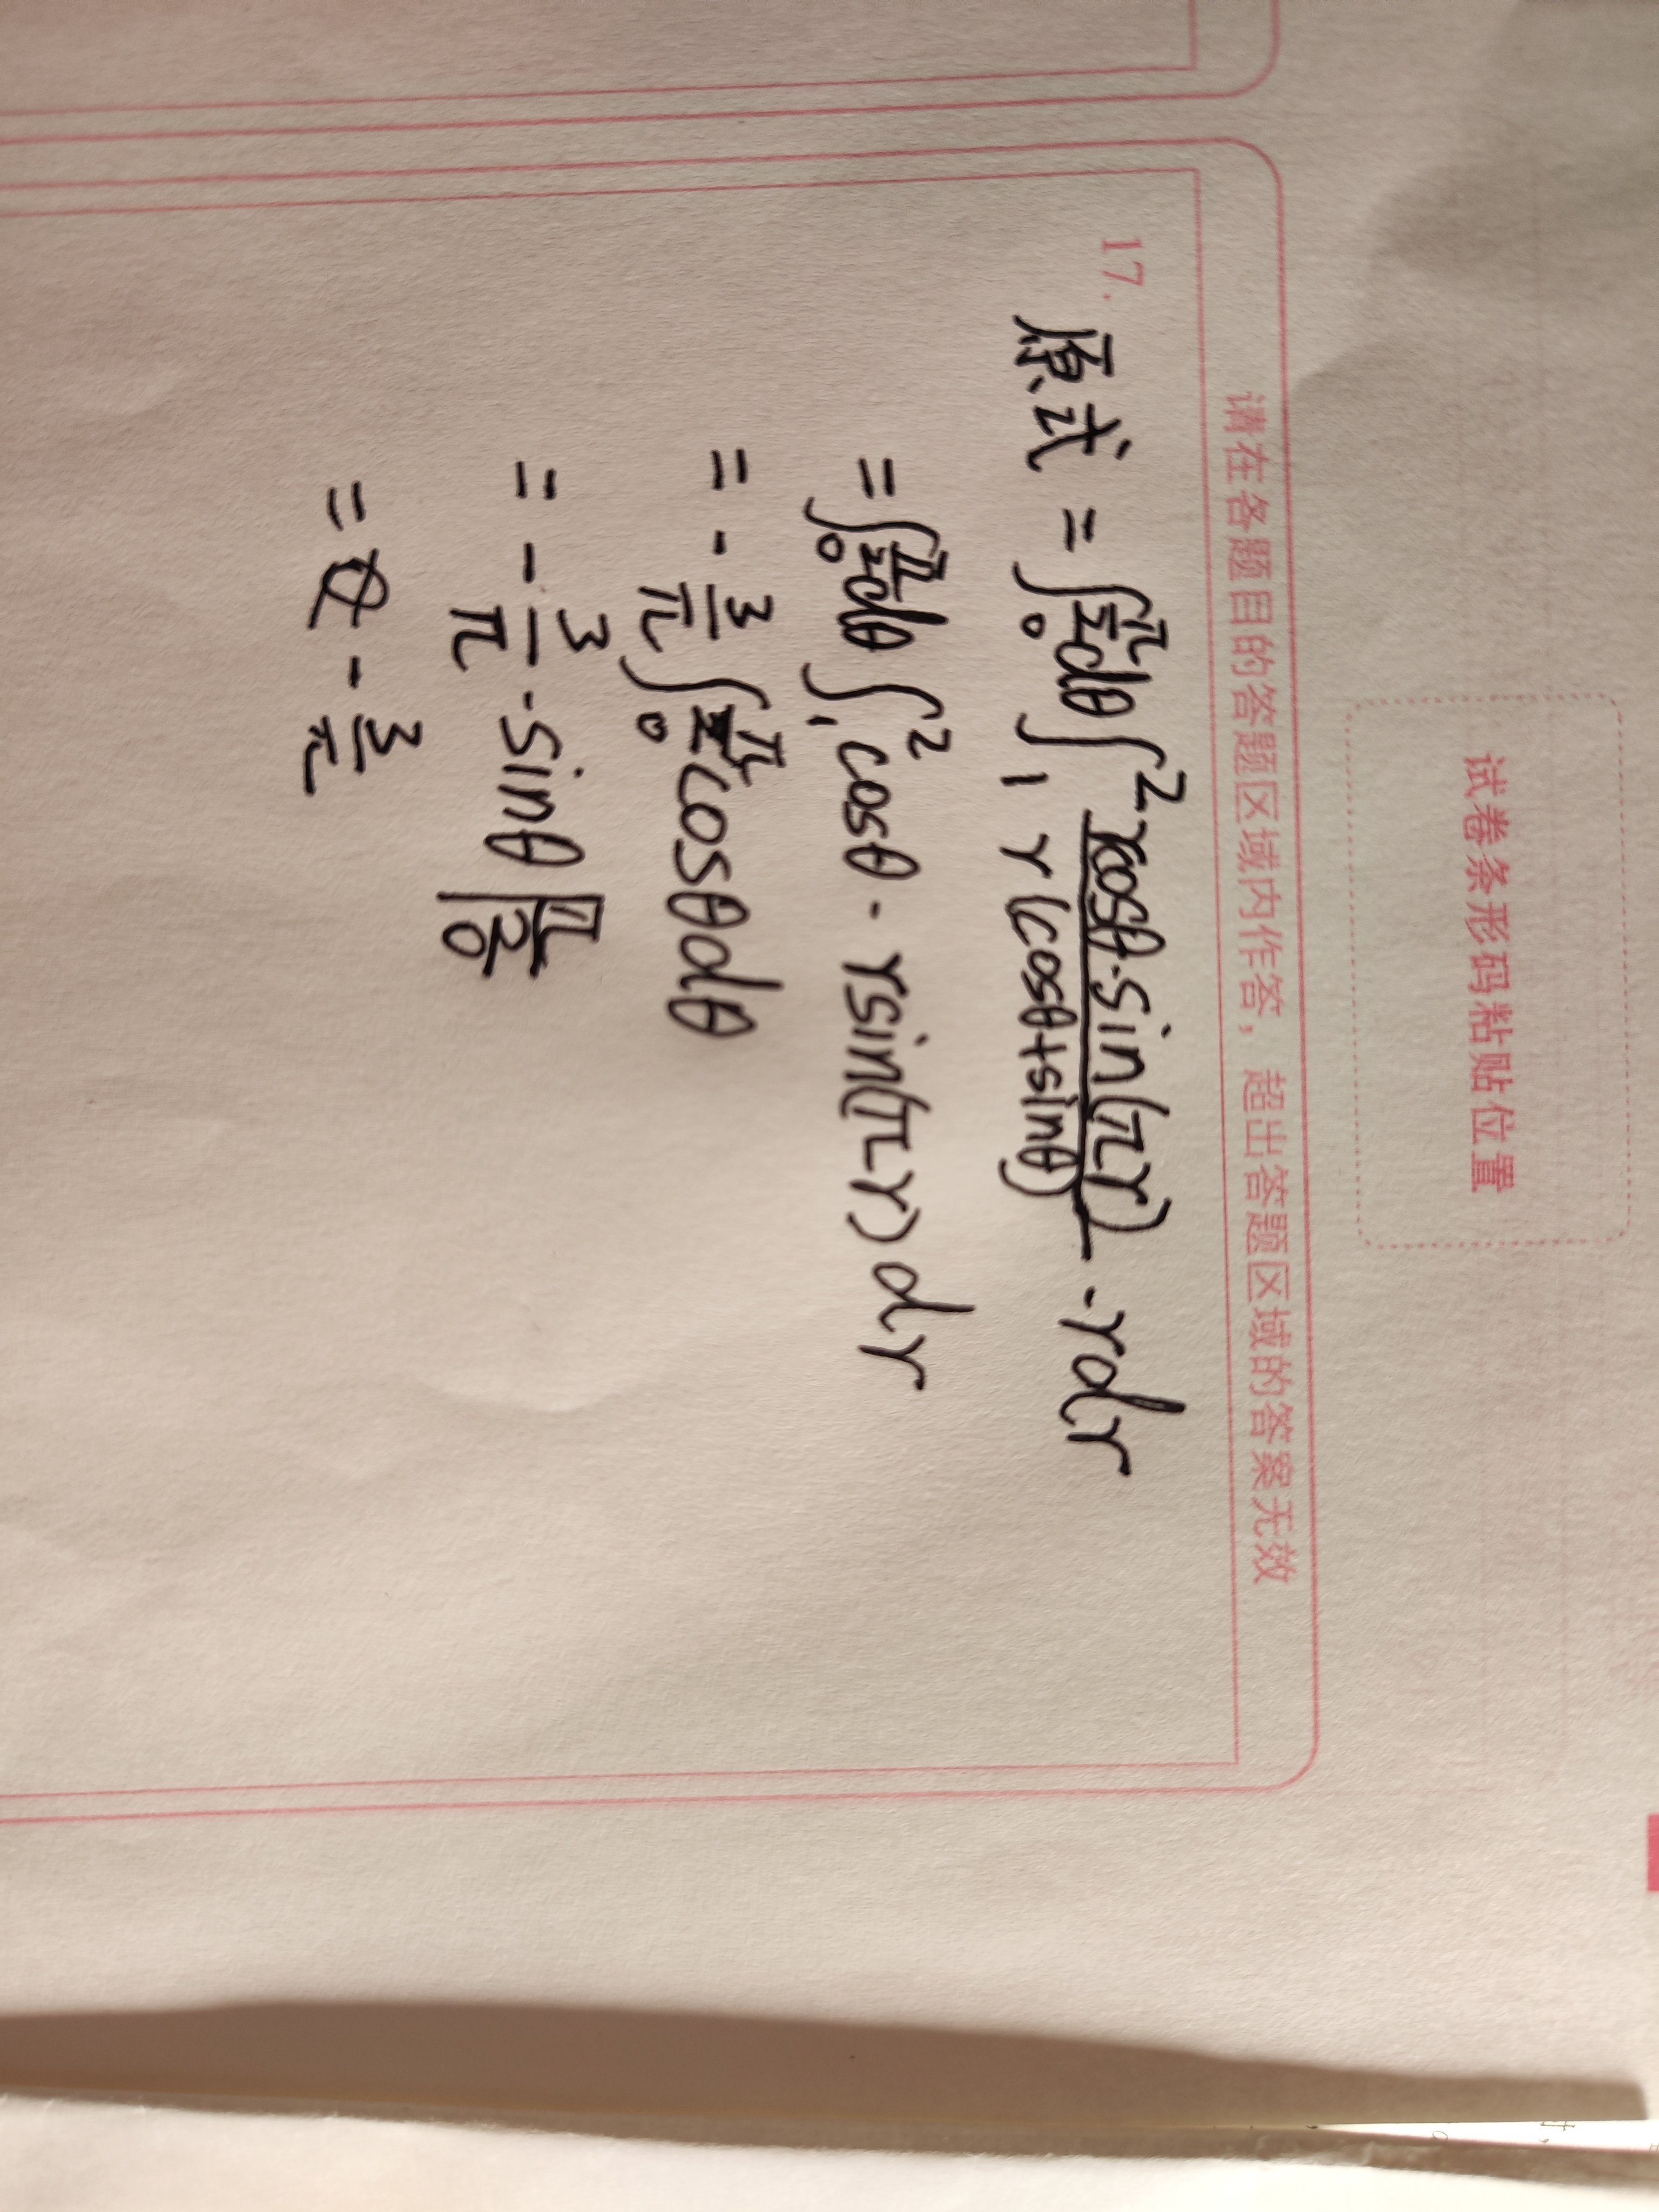 试卷条形码粘贴位置
请在各题目的答题区域内作答，超出答题区域的答案无效
17.
原式 = ∫₀^(π/2) dθ ∫₁² (rcosθ·sin(πr))/(r(cosθ+sinθ)) · rdr
= ∫₀^(π/2) dθ ∫₁² cosθ · rsin(πr) dr
= - 3/π ∫₀^(π/2) cosθdθ
= - 3/π · sinθ |₀^(π/2)
= - 3/π